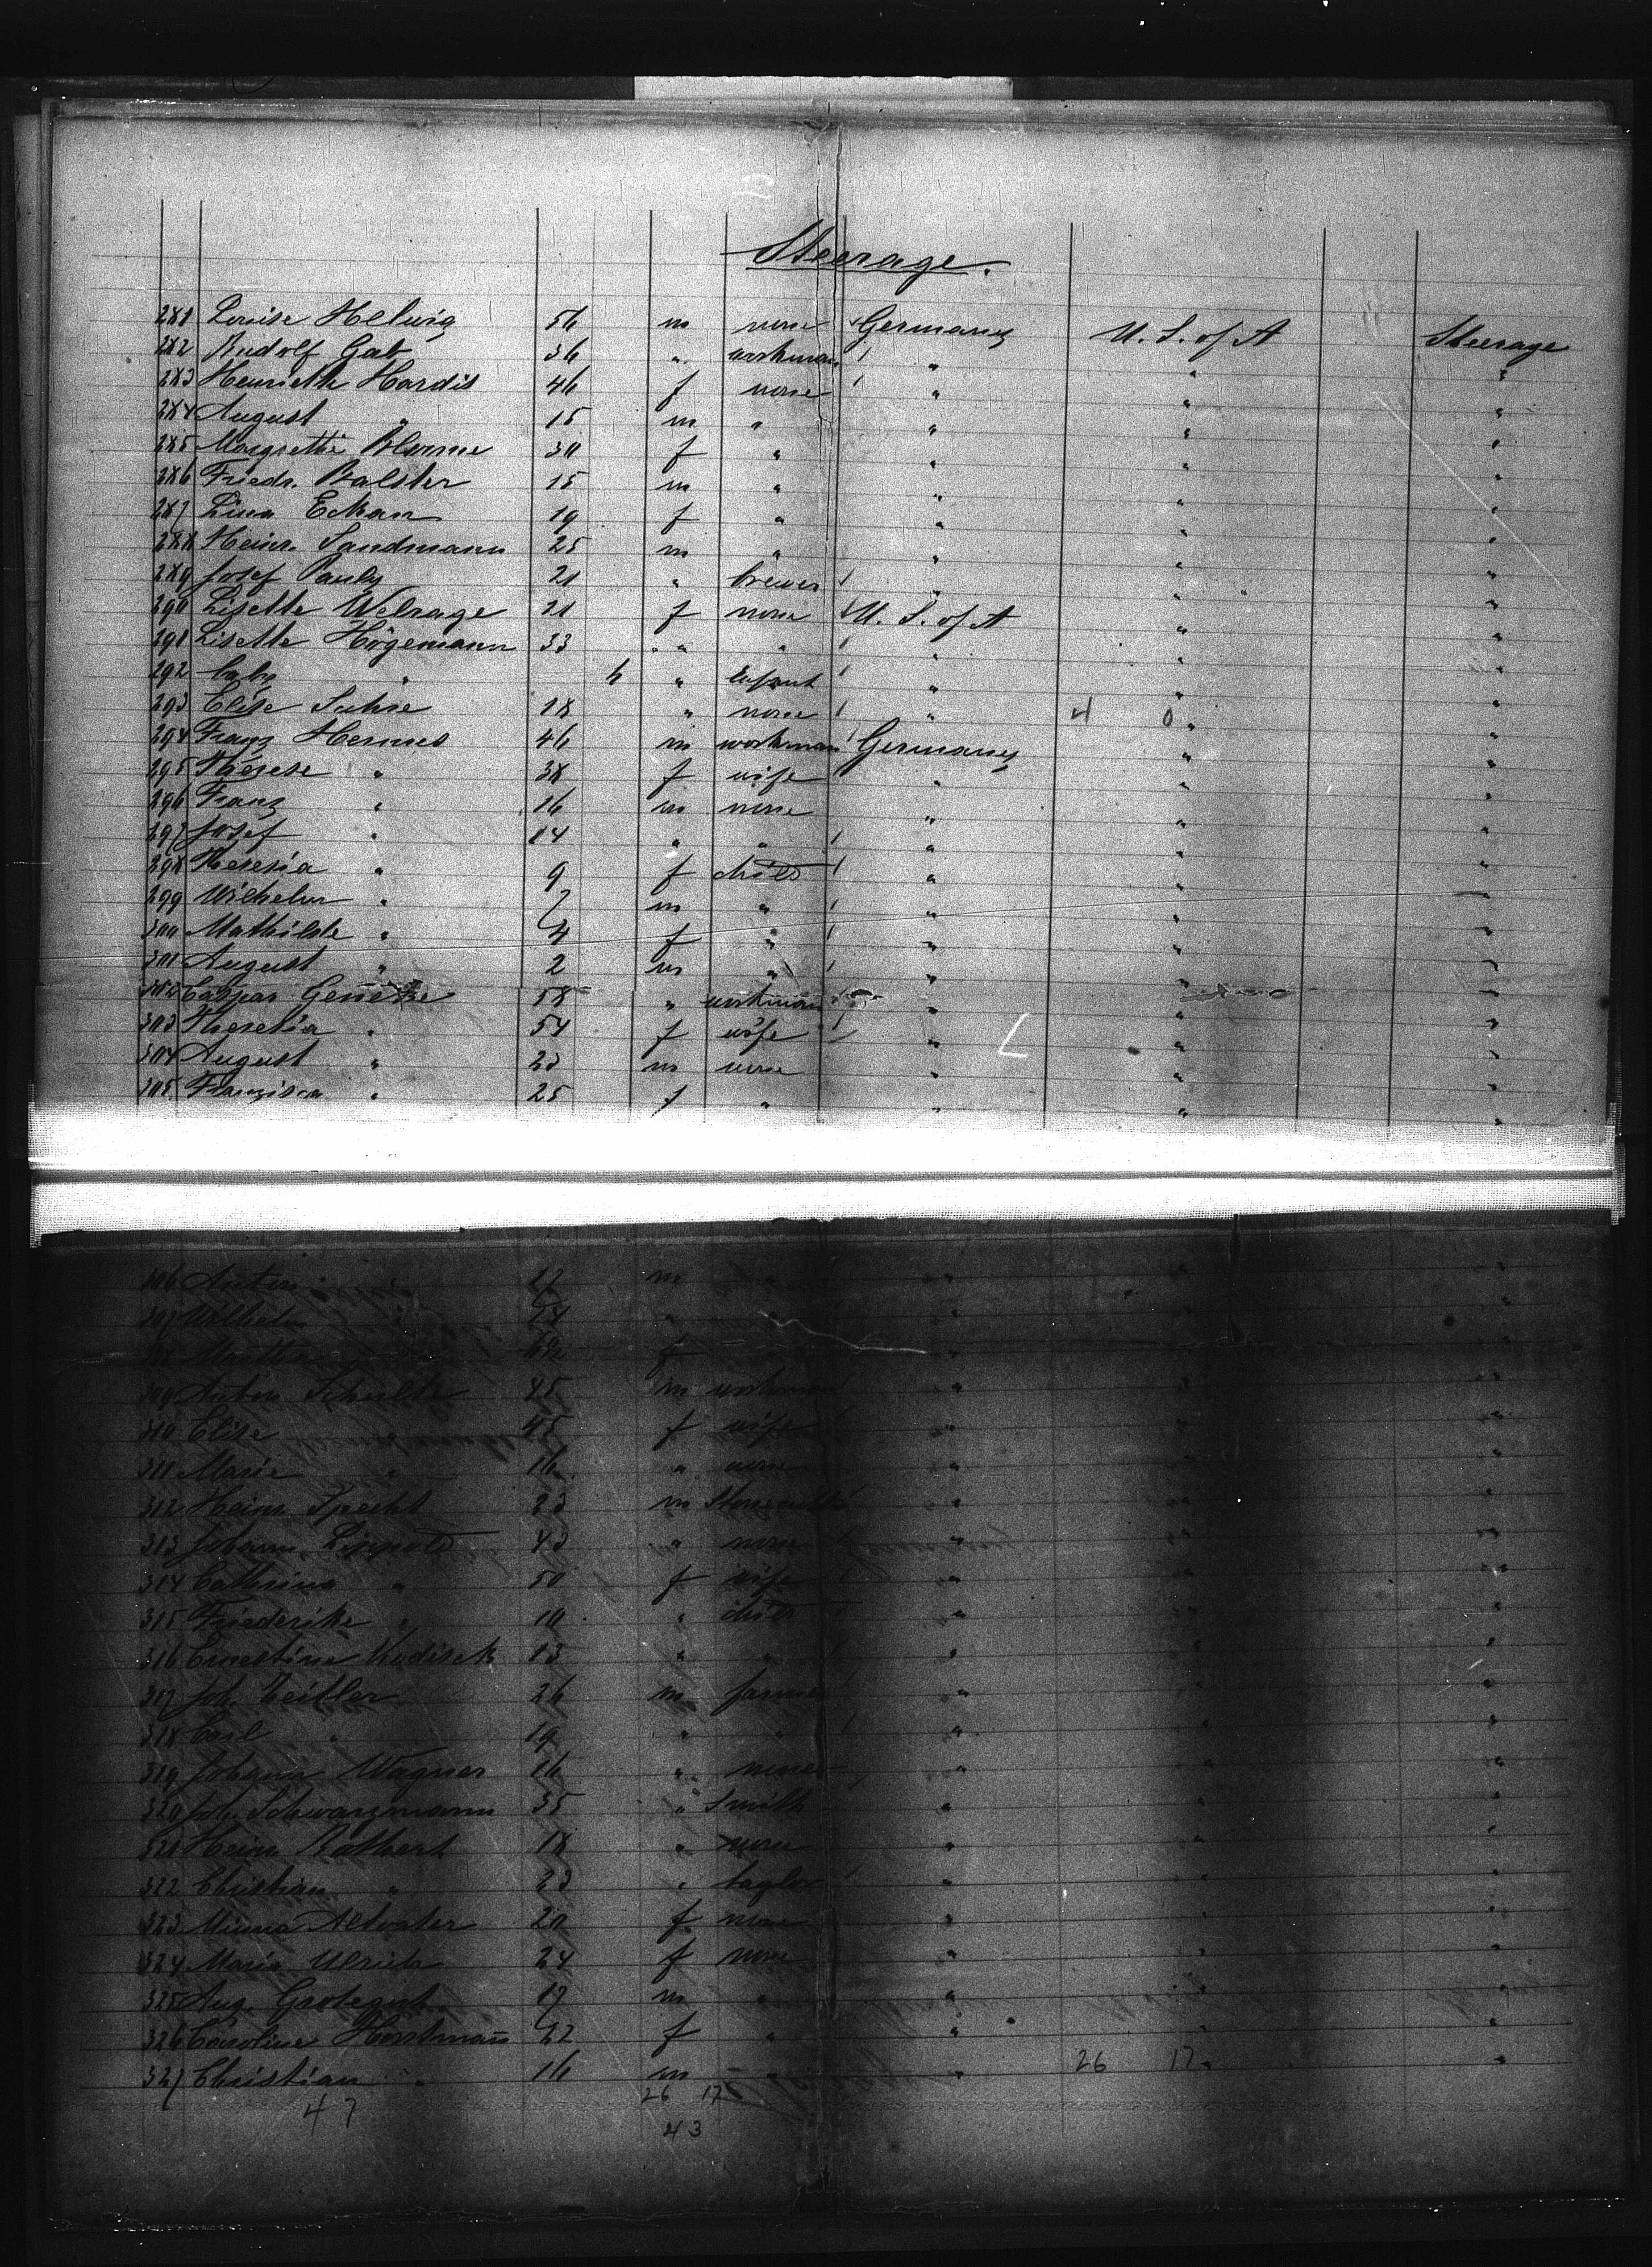 Steerage.
281 Louise Helwig 56 m none Germany U. S. of A Steerage
282 Rudolf Gab 36 " workman " " "
283 Henriette Hardis 46 f none " " "
284 August " 15 m " " " "
285 30 f " " " "
286 Friedr. Balster 15 m " " " "
287 Lina 19 f " " " "
288 Heinr. Sandmann 25 m " " " "
289 Josef Pauly 21 " brewer " " "
290 Lisette Welrage 21 f none U. S. of A " "
291 Lisette Högemann 33 " " " " "
292 baby " 6 " Infant " " "
293 Elise 18 " none " 4 0 " "
294 Franz Hermes 46 m workman Germany " "
295 Therese " 38 f wife " " "
296 Franz " 16 m none " " "
297 Josef " 14 " " " " "
298 Theresia " 9 f child " " "
299 Wilhelm " 7 m " " " "
300 Mathilde " 4 f " " " "
301 August " 2 m " " " "
302 Caspar 58 " workman " " "
303 Theresia " 54 f wife " " "
304 August " 23 m none " " "
305 Franzisca " 25 f " " " "
306 Anton " 17 m " " " "
307 Wilhelm " " " " " "
308 f " " "
309 Anton Schulte 45 m workman " " "
310 Elise 45 f wife " " "
311 Marie " 16 " none " " "
312 Heinr. Specht 23 m " " "
313 Johann Lippold 43 " none " " "
314 Cathrina " 50 f wife " " "
315 Friederike " 10 " child " " "
316 Ernestine Kodisek 13 " " " " "
317 Joh. Zeitler 26 m farmer " " "
318 Carl " 19 " " " " "
319 Johann Wagner 16 " none " " "
320 Joh. Schwarzmann 35 " Smith " " "
321 Heinr. Rathert 18 " none " " "
322 Christian " 23 " taylor " " "
323 Minna Altvater 20 f none " " "
324 Maria Ulrich 24 f none " " "
325 Aug. Grotegut 17 m " " " "
326 Caroline Horstmann 22 f " " " "
327 Christian " 16 m " " 26 17 " "
47 26 17
43